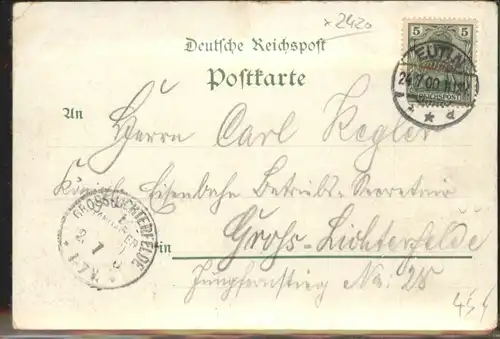 x 2420
Deutsche Reichspost
Postkarte
5 5
REICHSPOST
EUTIN
24 7 00
An
Herrn Carl Kegler
Eisenbahn Betriebs-Secretair
in Gross-Lichterfelde
Jungfernstieg No: 28
GROSS-LICHTERFELDE
1